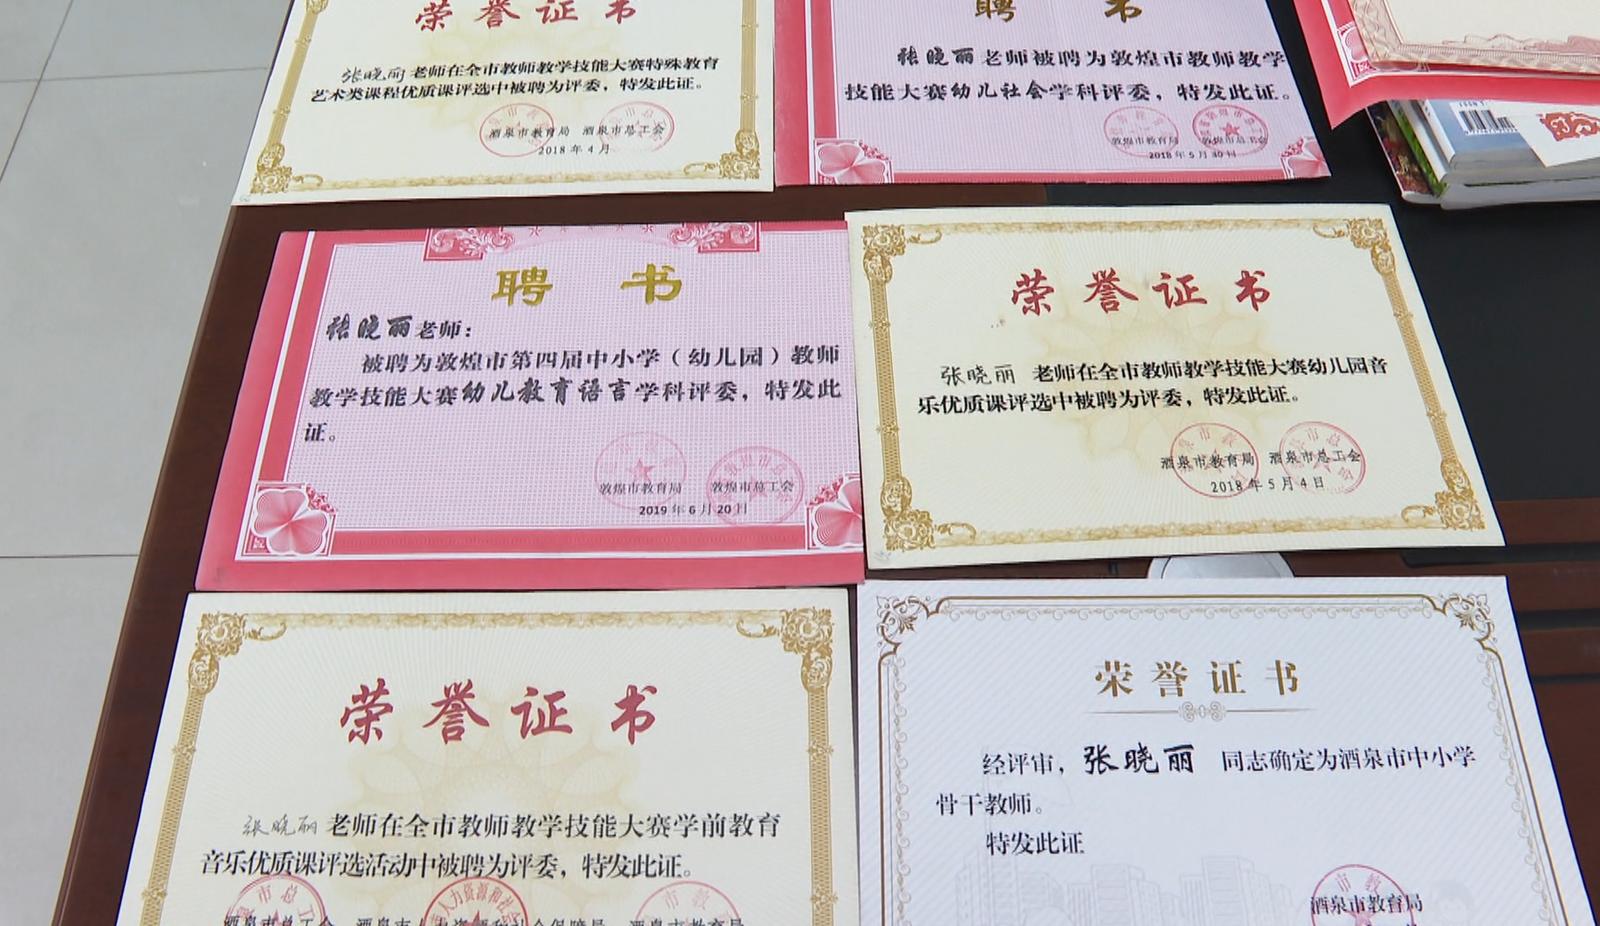 荣誉证书
张晓丽老师在全市教师教学技能大赛特殊教育
艺术类课程优质课评选中被聘为评委，特发此证。
酒泉市教育局 酒泉市总工会
2018 年 4 月
聘书
张晓丽老师被聘为敦煌市教师教学
技能大赛幼儿社会学科评委，特发此证。
敦煌市教育局 敦煌市总工会
2018 年 5 月 30 日
聘书
张晓丽老师：
被聘为敦煌市第四届中小学（幼儿园）教师
教学技能大赛幼儿教育语言学科评委，特发此
证。
敦煌市教育局 敦煌市总工会
2019 年 6 月 20 日
荣誉证书
张晓丽 老师在全市教师教学技能大赛幼儿园音
乐优质课评选中被聘为评委，特发此证。
酒泉市教育局 酒泉市总工会
2018 年 5 月 4 日
荣誉证书
张晓丽老师在全市教师教学技能大赛学前教育
音乐优质课评选活动中被聘为评委，特发此证。
酒泉市总工会 酒泉市人力资源和社会保障局 酒泉市教育局
荣誉证书
经评审，张晓丽 同志确定为酒泉市中小学
骨干教师。
特发此证
酒泉市教育局